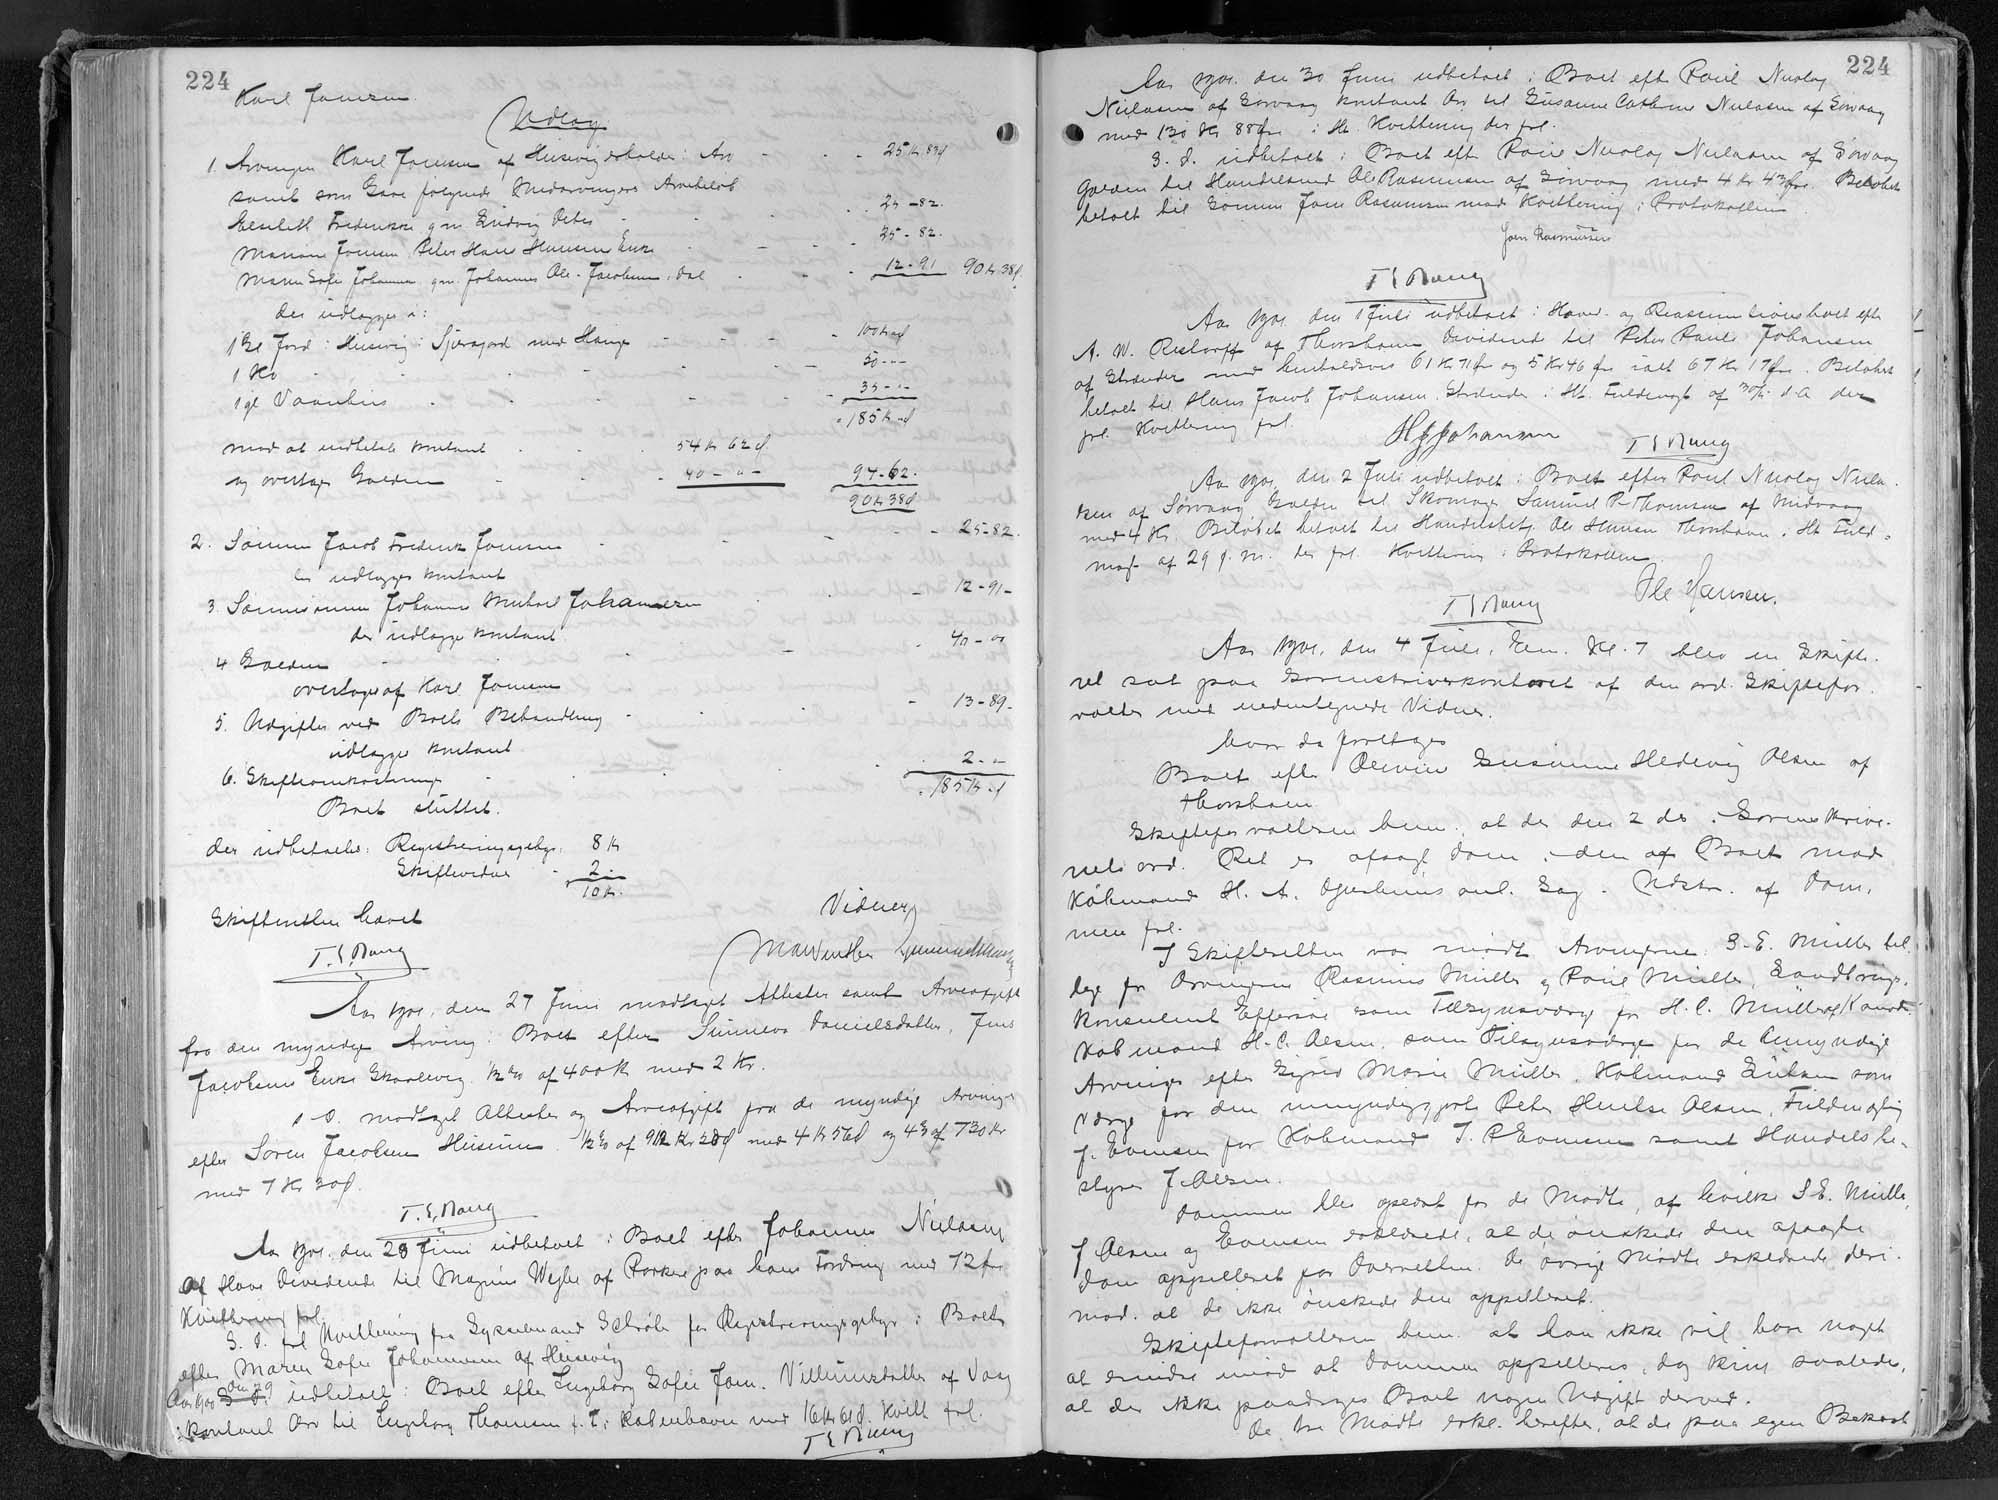 224
Karl Joensen
Udlæg
1. Arvingen Karl Joensen af Husevig beholder: Arv 25 Kr 83 Ø
samt som Gave følgende Medarvingers Arvebeløb
Elsebeth Frederikke g.m. Ludvig Peter 25-82.
Mariane Joensen Peter Hans Hansens Enke 25-82.
Maren Sofie Johannesen g.m. Johannes Ole-Jacobsen, Dal 12-91 90 Kr 38 Ø
der udlægges i:
1 Gl Jord i Husevig: med Hauge 100 Kr Ø
1 Ko 50--
1 gl Vaanhus 35--
185 Kr Ø
mod at indbetale kontant 54 Kr 62 Ø
og overtage Gælden 40-"- 94-62.
90 Kr 38 Ø
2. Sønnen Jacob Frederik Joensen 25-82.
der udlægges kontant
3. Sønnesønnen Johannes Michael Johannesen 12-91-
der udlægges kontant
4 Gælden 40-"
overtages af Karl Joensen
5. Udgifter ved Boets Behandling 13-89-
udlægges kontant
6. Skifteomkostninger 2--
185 Kr Ø
Boet sluttet.
der udbetales: Registreringsgebyr. 8 Kr
Skiftevidner 2..
10 Kr.
Skifteretten hævet
Vidner
T. S. Maug
M A Winther
Aar 1901, den 27 Juni modtaget Attester samt Arveafgift
fra den myndige Arving i Boet efter Sunneva Danielsdatter, Jens
Jacobsens Enke Skaalevig ½% af 400 Kr med 2 Kr.
s. D. modtaget Attester og Arveafgift fra de myndige Arvinger
efter Søren Jacobsen Husum ½% af 912 Kr 28 Ø med 4 Kr 56 Ø og 4% af 730 Kr
med 7 Kr 30 Ø.
T. S. Maug
Aar 1901, den 28 Juni udbetalt i Boet efter Johannes Nielsen
af Hove Dividende til Magnus Wejhe af Porkere paa hans Fordring med 72 Øre
Kvittering frl.
S. D. frl. Kvittering fra Sysselmand Schrøter for Registreringsgebyr i Boet
efter Maren Sofie Johannesen af Husevig
Aar 1900 den 29 udbetalt i Boet efter Ingeborg Sofie Joen. Villumsdatter af Vaag
kontant Arv til Ingeborg Thomsen f. T. i København med 16 Kr 61 Ø. Kvitt frl.
T S Maug
224
Aar 1901. den 30 Juni udbetalt i Boet eft Poul Nicolaj
Nielsen af Sørvaag kontant Arv til Susanne Cathrine Nielsen af Sørvaag
med 130 Kr 88 Øre i Hh. Kvittering der frl.
S. d. udbetalt i Boet eft Poul Nicolaj Nielsen af Sørvaag
Gælden til Handelsmd Ole Rasmussen af Sørvaag med 4 Kr 43 Øre. Beløbet
betalt til Sønnen Joen Rasmussen mod Kvittering i Protokollen
Joen Rasmussen
T S Maug
Aar 1901 den 1 Juli udbetalt i Hoved- og Reassumtionsboet eft
A. W. Restorff af Thorshavn Dividende til Peter Poul Johansen
af Strænder med henholdsvis 61 Kr 71 Øre og 5 Kr 46 Øre ialt 67 Kr 17 Øre. Beløbet
betalt til Hans Jacob Johansen, Strænder i Hh. Fuldmagt af d. A der
frl. Kvittering frl.
H J Johansen
T S Maug
Aar 1901, den 2 Juli udbetalt i Boet efter Poul Nicolaj Niel-
sen af Sørvaag Gælden til Skomager Samuel P. Thomsen af Midvaag
med 4 Kr. Beløbet betalt til Handelsbest. Ole Hansen Thorshavn i Hh Fuld-
magt af 29 f. M. der frl. Kvittering i Protokollen.
Ole Hansen.
T S Maug
Aar 1901, den 4 Juli, Em. Kl. 7 blev en Skifte-
ret sat paa Sorenskriverkontoret af den ord. Skiftefor-
valter med undertegnede Vidner.
hvor da foretages
Boet efter Susanne Hedevig Olsen af
Thorshavn
Skifteforvalteren bem. at der den 2 ds. i Sorenskrive-
rets ord. Ret er afsagt Dom i den af Boet mod
Købmand H. A. Djurhuus anl. Sag. Udskr. af Dom-
men frl.
I Skifteretten var mødt Arvingerne S. E. Müller til-
lige for Arvingerne Rasmus Müller og Poul Müller, Landbrugs-
konsulent Effersøe som Tilsynsværge for H. C. Müller, Kand.
Købmand H. C. Olsen, som Tilsynsværge for de Umyndige
Arvinger efter Sigrid Marie Müller, Købmand som
Værge for den umyndiggjorte Peter Olsen, Fuldmægtig
J. Evensen for Købmand J. P. Evensen samt Handelsbe-
styrer J. Olsen.
Dommen blev oplæst for de Mødte, af hvilke S. E. Müller,
J Olsen og Evensen erklærede, at de ønskede den afsagte
Dom appelleret for Overretten. De øvrige Mødte erklærede deri-
mod. at de ikke ønskede den appelleret.
Skifteforvalteren bem. at han ikke vil have noget
at erindre imod at Dommen appelleres, dog kun saaledes,
at der ikke paadrages Boet nogen Udgift derved.
De tre Mødte erkl. herefter, at de paa egen Bekost